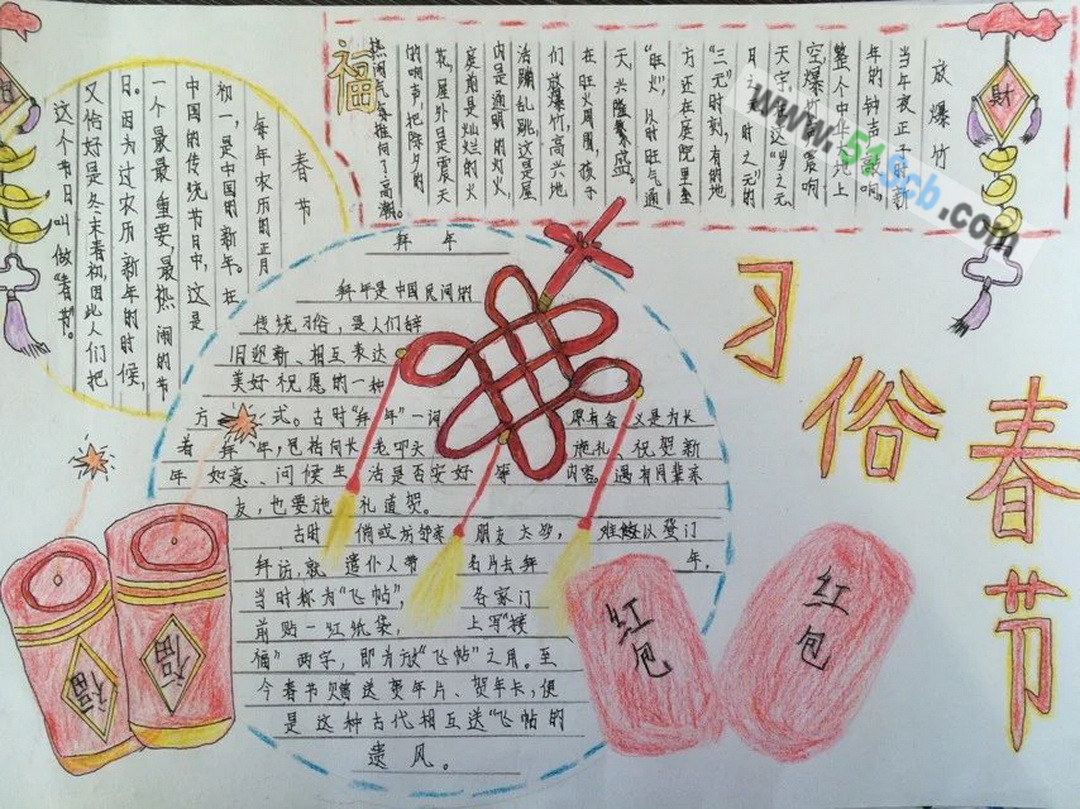 春节
习俗
福
财
放爆竹
当年夜正子时新
年的钟声敲响,
整个中华大地上
空,爆竹声震响
天宇。在这"岁之元、
月之元、时之元"的
"三元"时刻,有的地
方还在庭院里垒
"旺火",以时旺气通
天,兴隆繁盛。
在旺火周围,孩子
们放爆竹,高兴地
活蹦乱跳,这是屋
内是通明的灯火,
庭前是灿烂的火
花,屋外是震天
的响声,把除夕的
热闹气氛推向了高潮。
春节
每年农历的正月
初一,是中国的新年。在
中国的传统节日中,这是
一个最最重要,最热闹的节
日。因为过农历新年的时候,
又恰好是冬末春初,因此人们把
这个节日叫做"春节"。
拜年
拜年是中国民间的
传统习俗,是人们辞
旧迎新、相互表达
美好祝愿的一种
方式。古时"拜年"一词原有含义是为长
者拜年,包括向长老叩头施礼、祝贺新
年如意、问候生活是否安好等内容。遇有同辈亲
友,也要施礼道贺。
古时倘或坊邻亲朋友太多,难以登门
拜访,就遣仆人带名片去拜年,
当时称为"飞帖",各家门
前贴一红纸袋,上写"接
福"两字,即为放"飞帖"之用。至
今春节赠送贺年片、贺年卡,便
是这种古代相互送"飞帖的
遗风。
福
福
红包
红包
www.51Scb.com